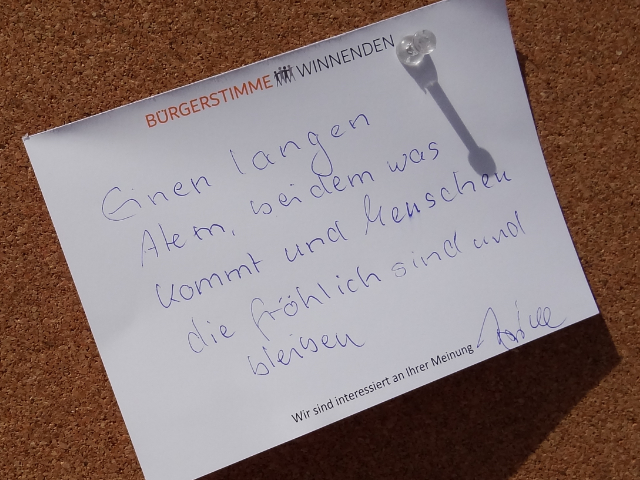 BÜRGERSTIMME WINNENDEN
Einen langen
Atem, beidem was
kommt und Menschen
die fröhlich sind und
bleiben
Wir sind interessiert an Ihrer Meinung